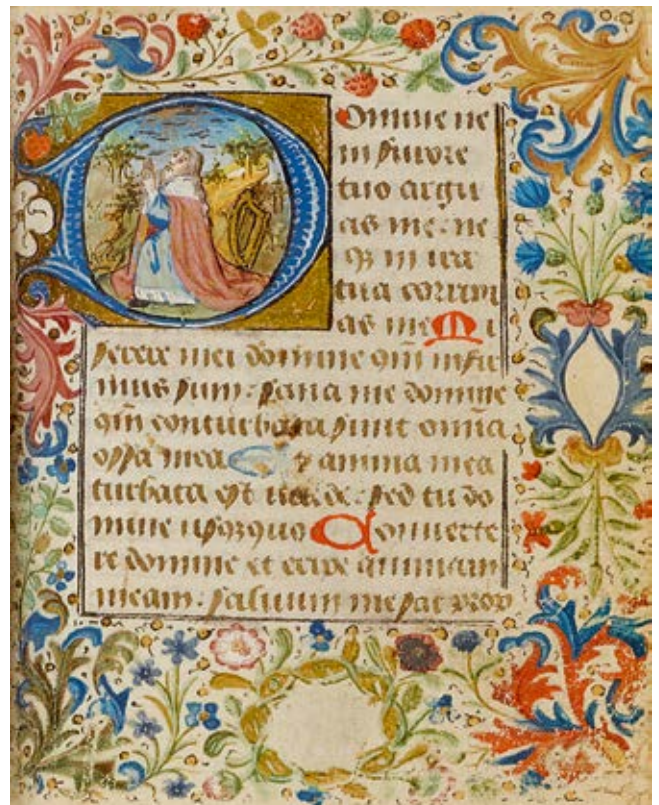 Domine ne
in furore
tuo argu
as me: ne
qꝫ in ira
tua corripi
as me Mi
serere mei domine qm̄ infir
mus sum: sana me domine
qm̄ conturbata sunt om̄ia
ossa mea Et anima mea
turbata est ualde: sed tu do
mine usqꝫquo Conuerte
re domine et eripe animam
meam: saluum me fac prop